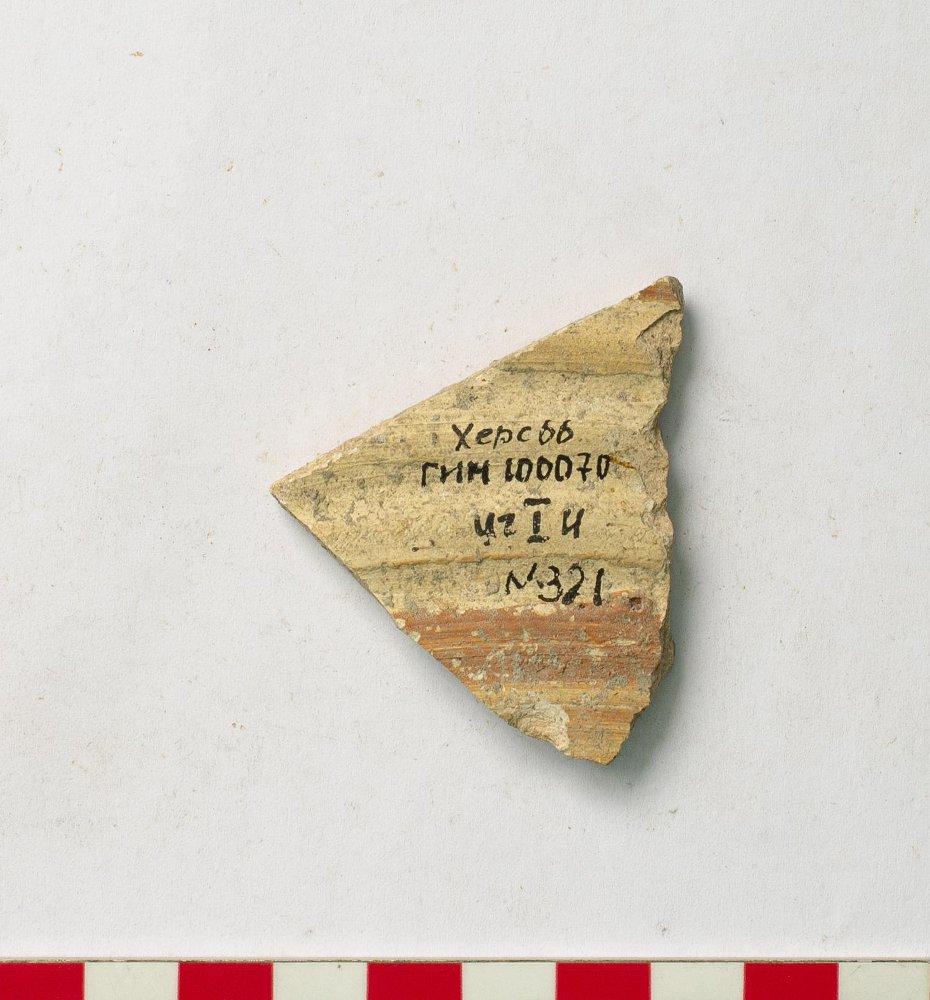 Херс 66
ГИМ 100070
уч I Ч
№321